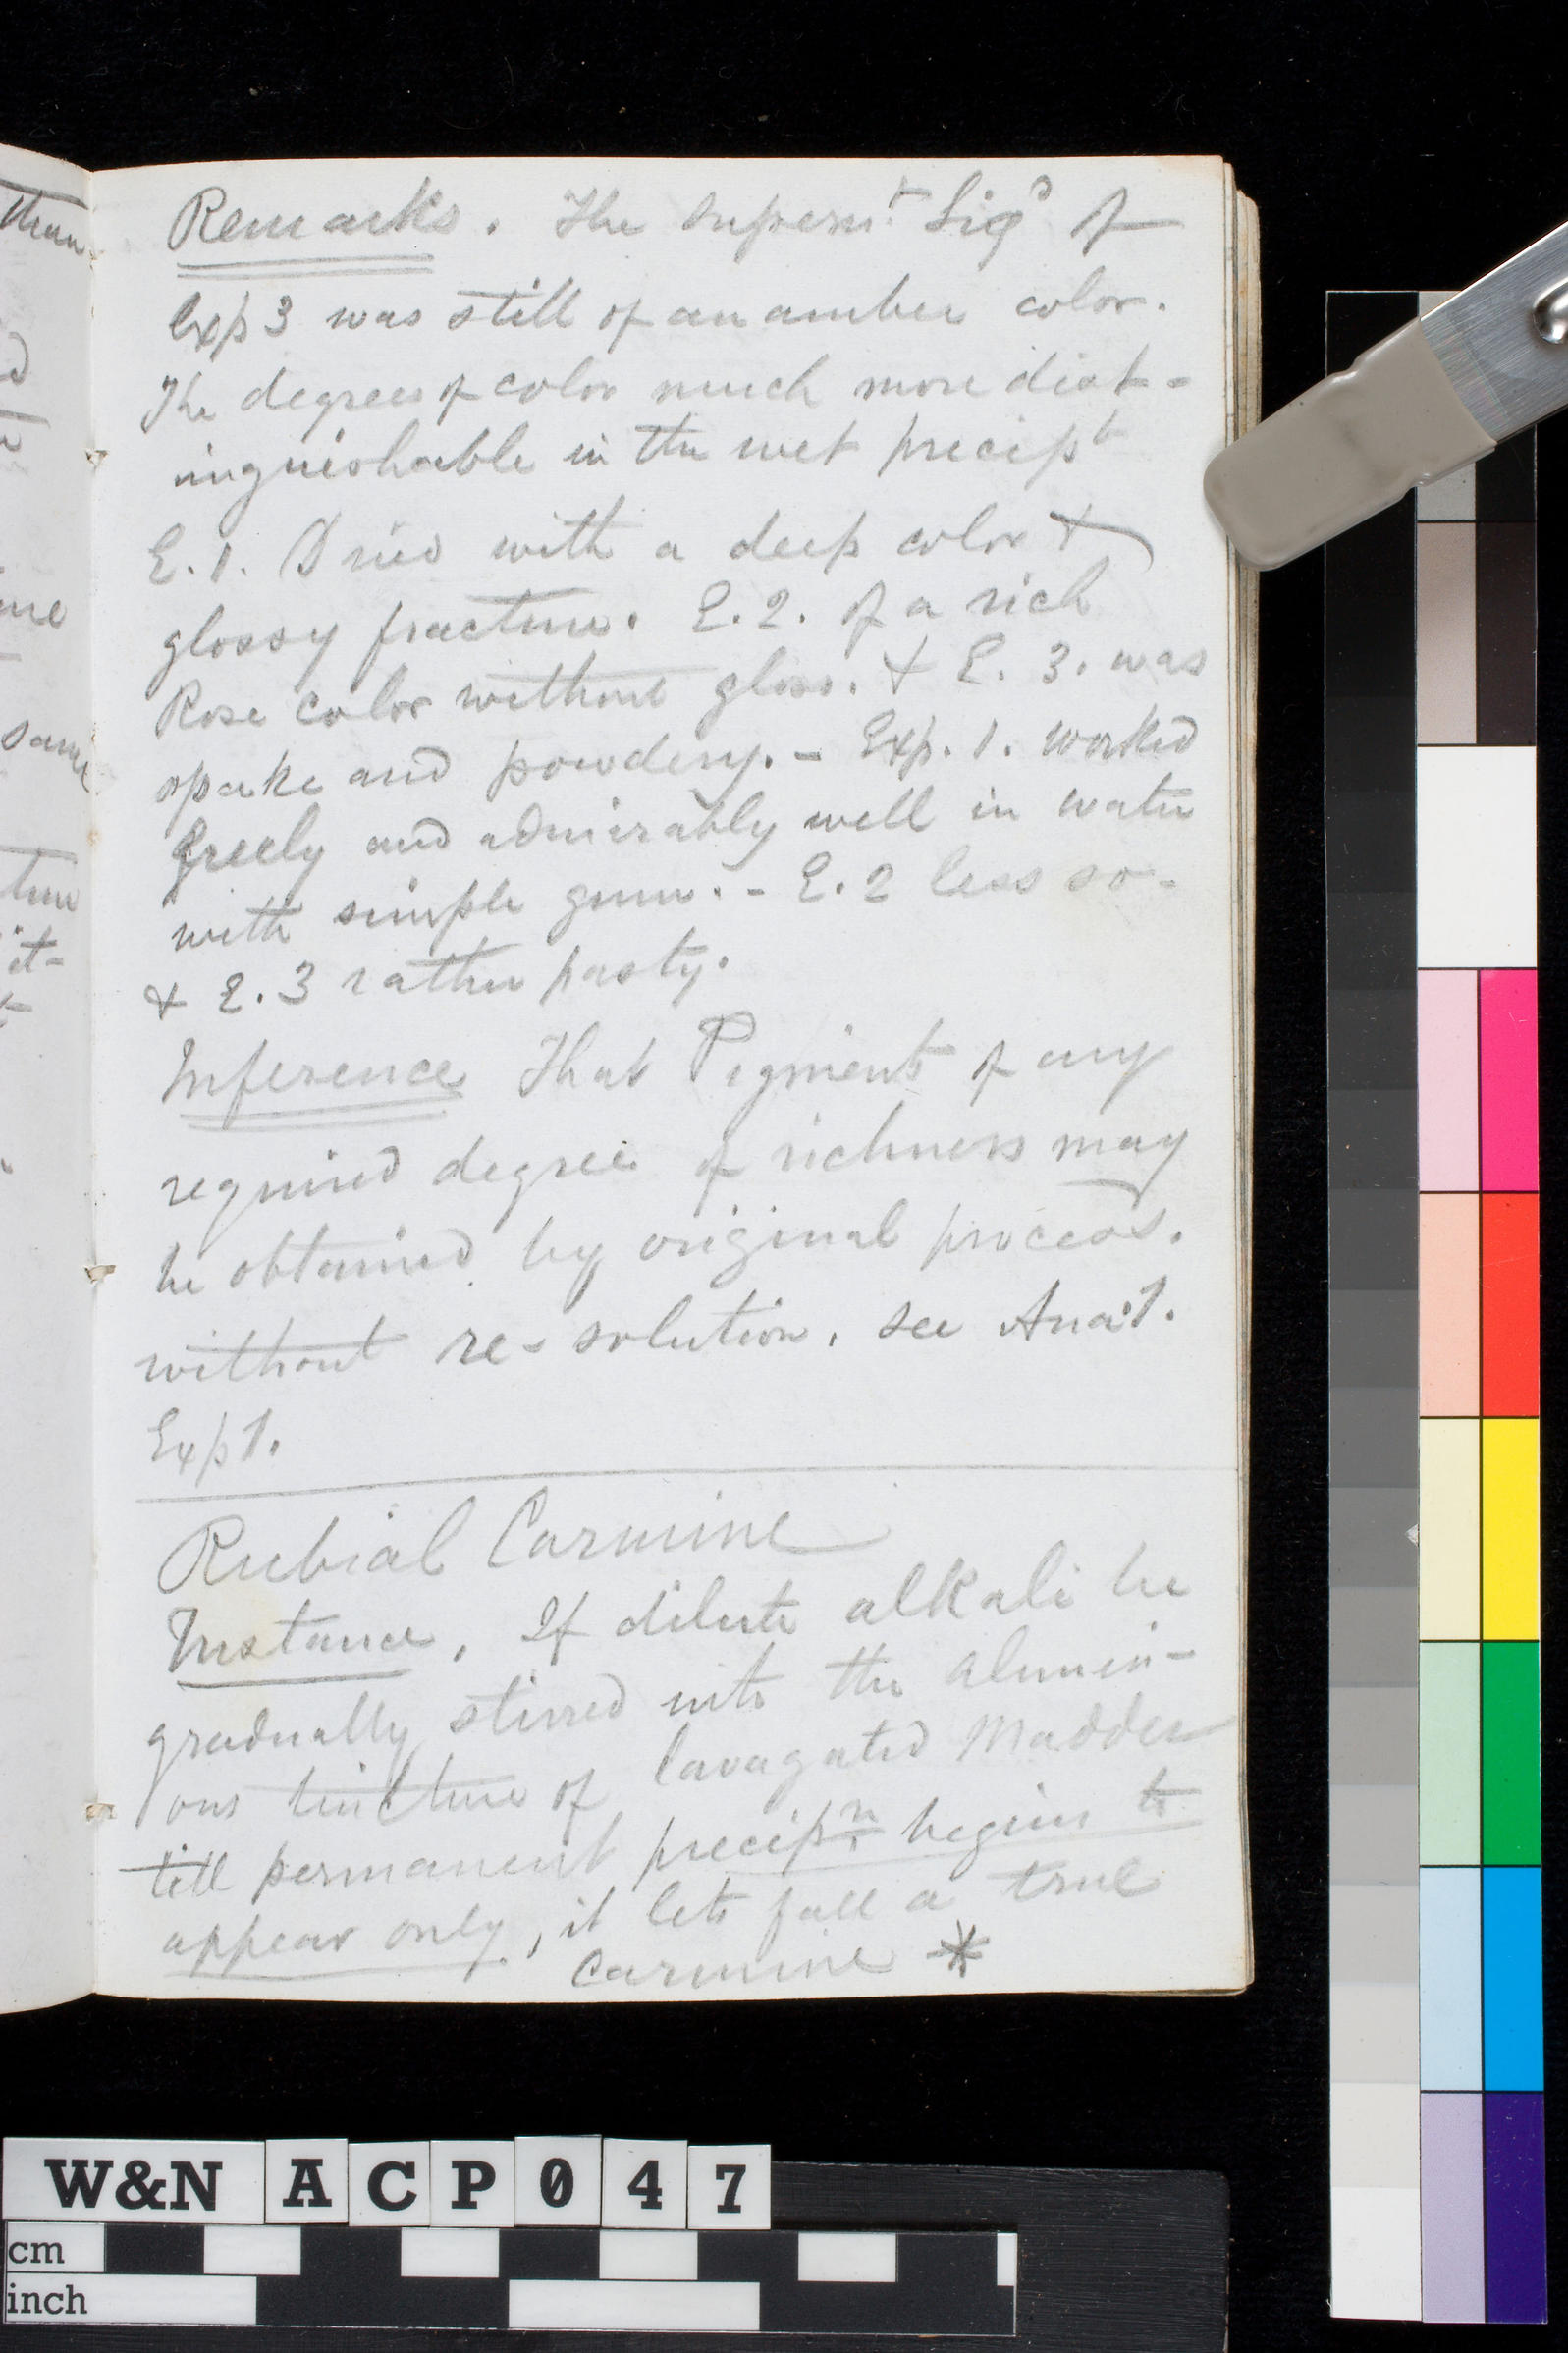 Remarks. The supern.t Liqd of
Exp 3 was still of an amber color.
The degrees of color much more dist-
inguishable in the wet precipt
E. 1. Dried with a deep color &
glossy fracture. E. 2. of a rich
Rose color without gloss. & E. 3. was
opake and powdery. - Exp. 1. worked
freely and admirably well in water
with simple gum. - E. 2 less so -
& E. 3 rather pasty.
Inference That Pigment of any
required degree of richness may
be obtained by original process.
without re-solution. see Ana: 1.
Exp 1.
Rubial Carmine
Instance, If dilute alkali be
gradually stirred into the alumin-
ous tincture of lavagated Madder
till permanent precipn begins to
appear only, it lets fall a true
Carmine *
than
me
same
W&N ACP047
cm
inch